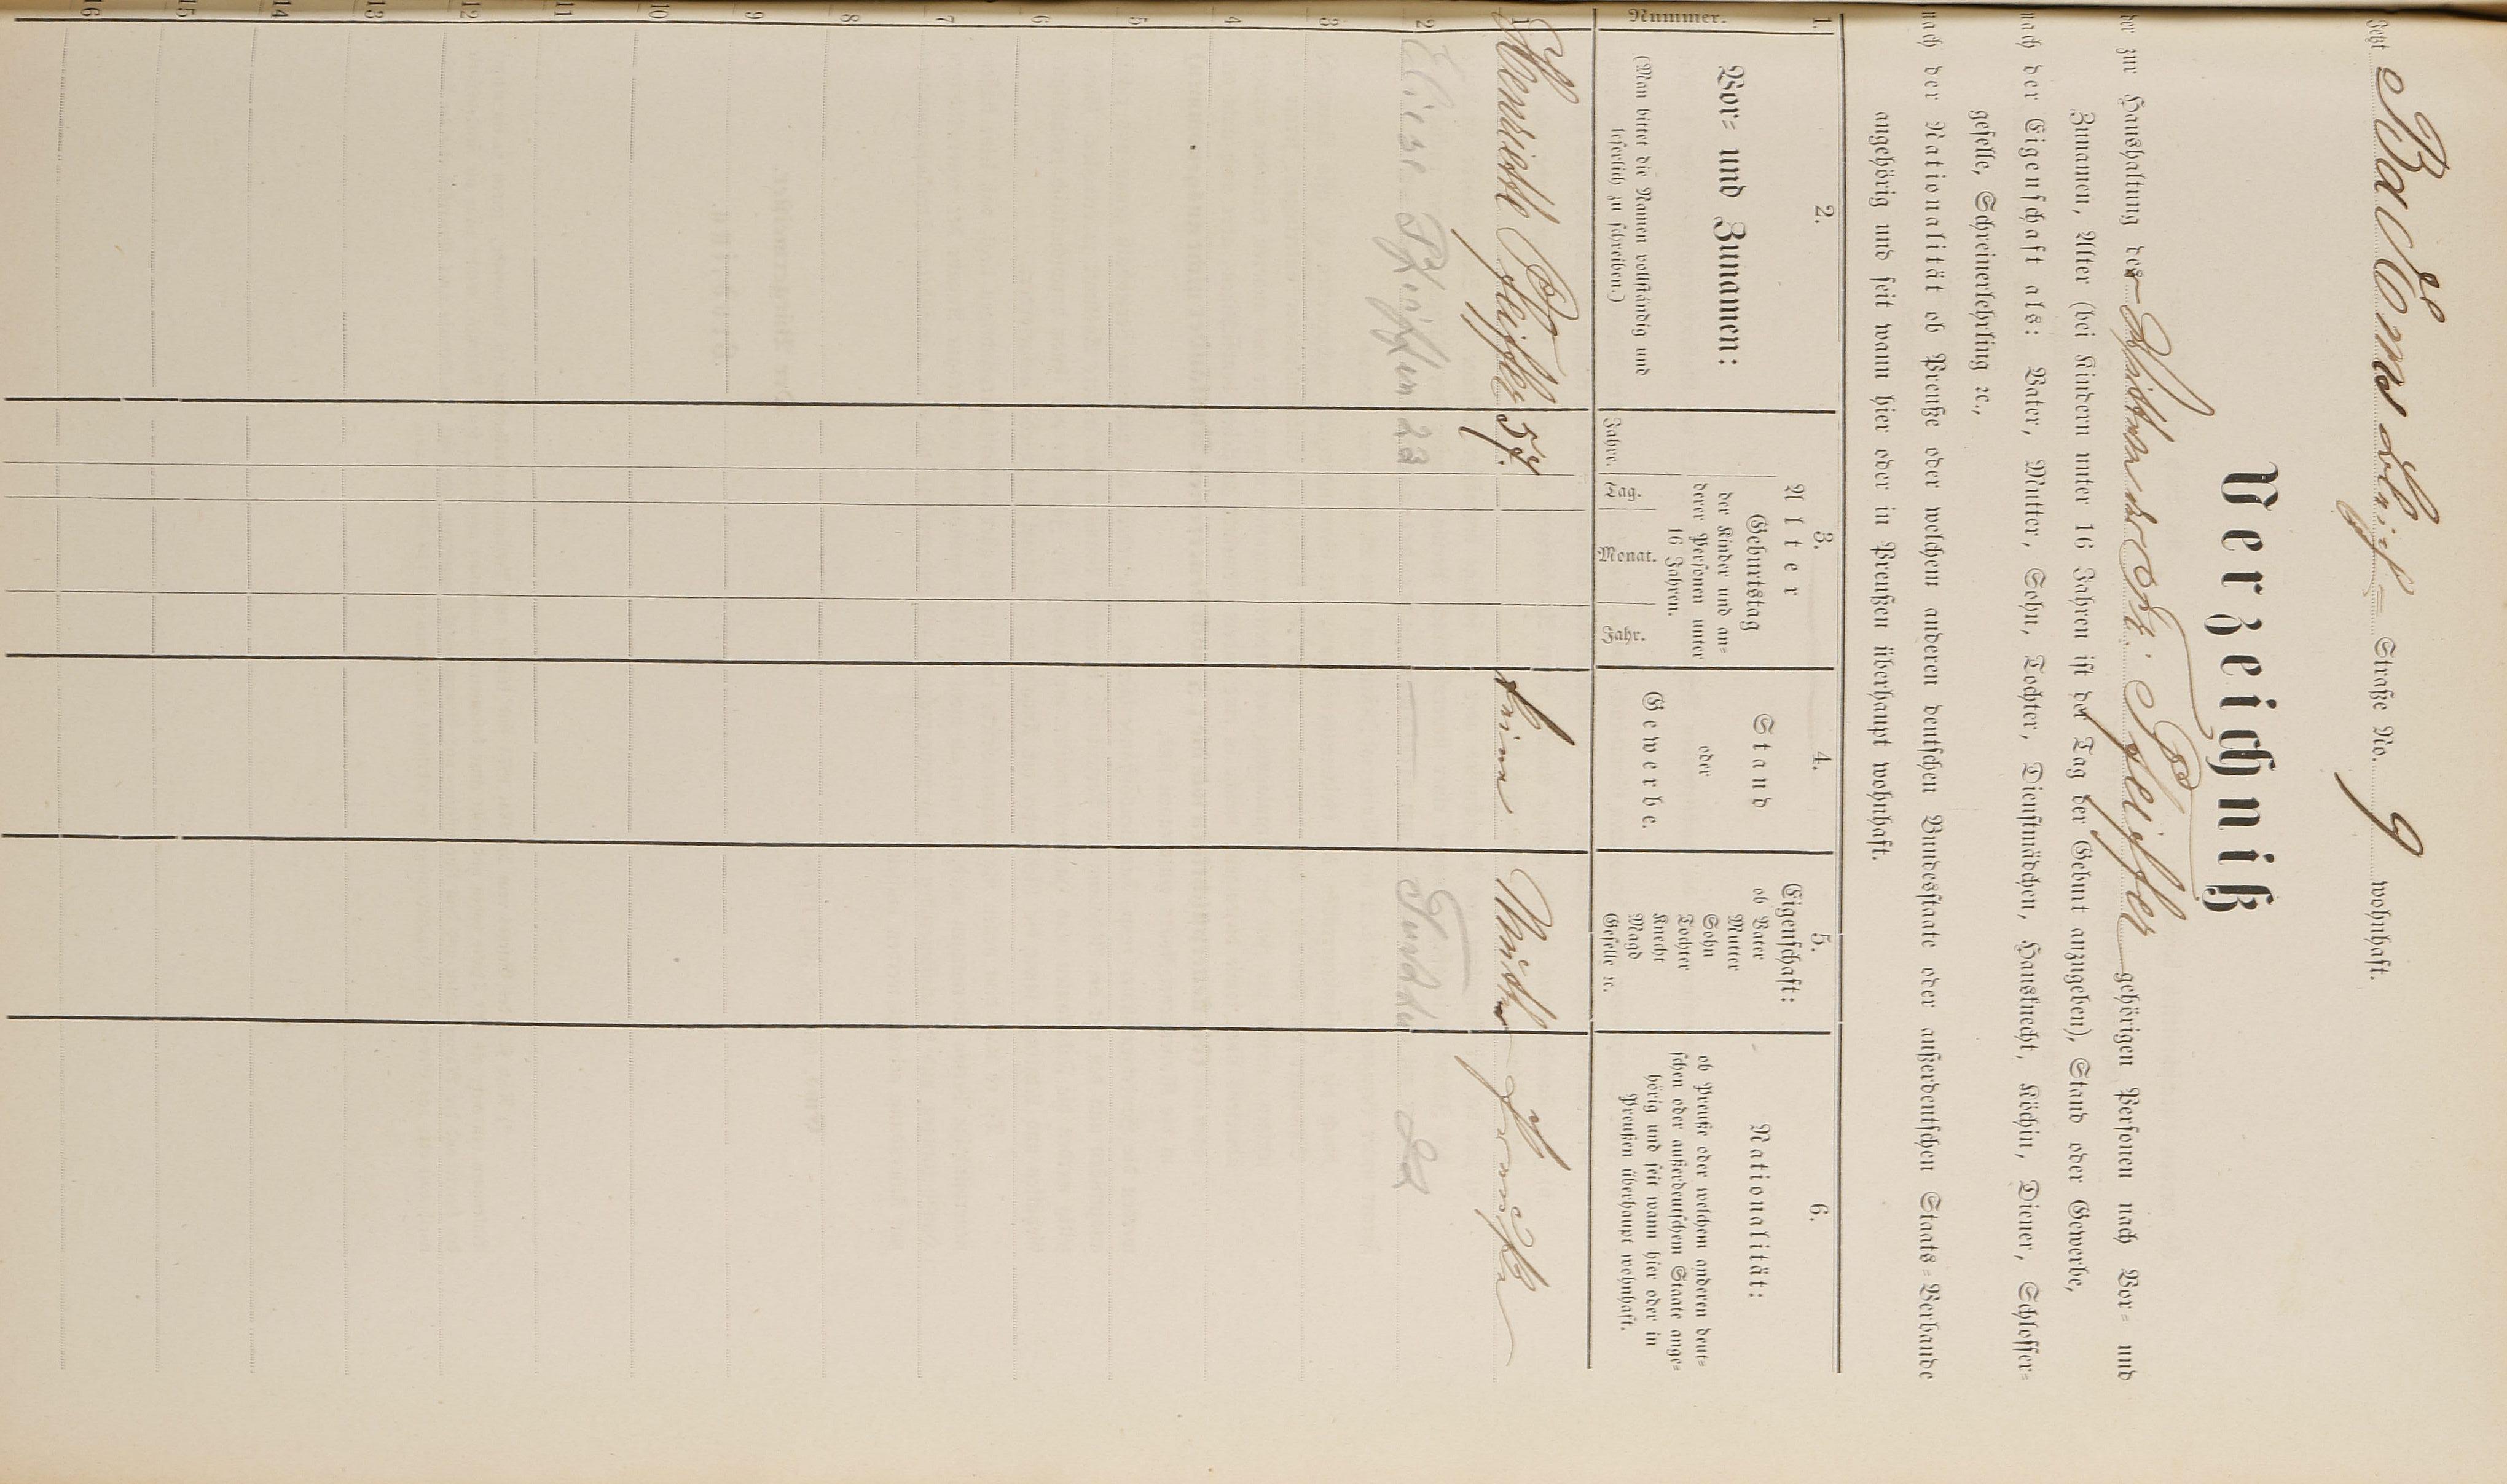 Jetzt Bardöns Kließ= Straße No. 9 wohnhaft.
Verzeichniß
der zur Haushaltung der Wittwe Pfeiffer gehörigen Personen nach Vor= und
Zunamen, Alter (bei Kindern unter 16 Jahren ist der Tag der Geburt anzugeben), Stand oder Gewerbe,
nach der Eigenschaft als: Vater, Mutter, Sohn, Tochter, Dienstmädchen, Hausknecht, Köchin, Diener, Schlosser=
geselle, Schreinerlehrling ꝛc.,
nach der Nationalität ob Preuße oder welchem anderen deutschen Bundesstaate oder außerdeutschen Staats=Verbande
angehörig und seit wann hier oder in Preußen überhaupt wohnhaft.
1. 2. 3. 4. 5. 6.
Nummer.
Vor= und Zunamen:
(Man bittet die Namen vollständig und
leserlich zu schreiben.)
Alter
Geburtstag
der Kinder und an=
derer Personen unter
16 Jahren.
Jahre. Tag. Monat. Jahr.
Stand
oder
Gewerbe.
Eigenschaft:
ob Vater
Mutter
Sohn
Tochter
Knecht
Magd
Geselle ꝛc.
Nationalität:
ob Preuße oder welchem anderen deut=
schen oder außerdeutschem Staate ange=
hörig und seit wann hier oder in
Preußen überhaupt wohnhaft.
1 Henriette Pfeiffer 57. keine Mutter Preuße
2 Elise Pfeiffer 23 — Tochter
3
4
5
6
7
8
9
10
11
12
13
14
15
16